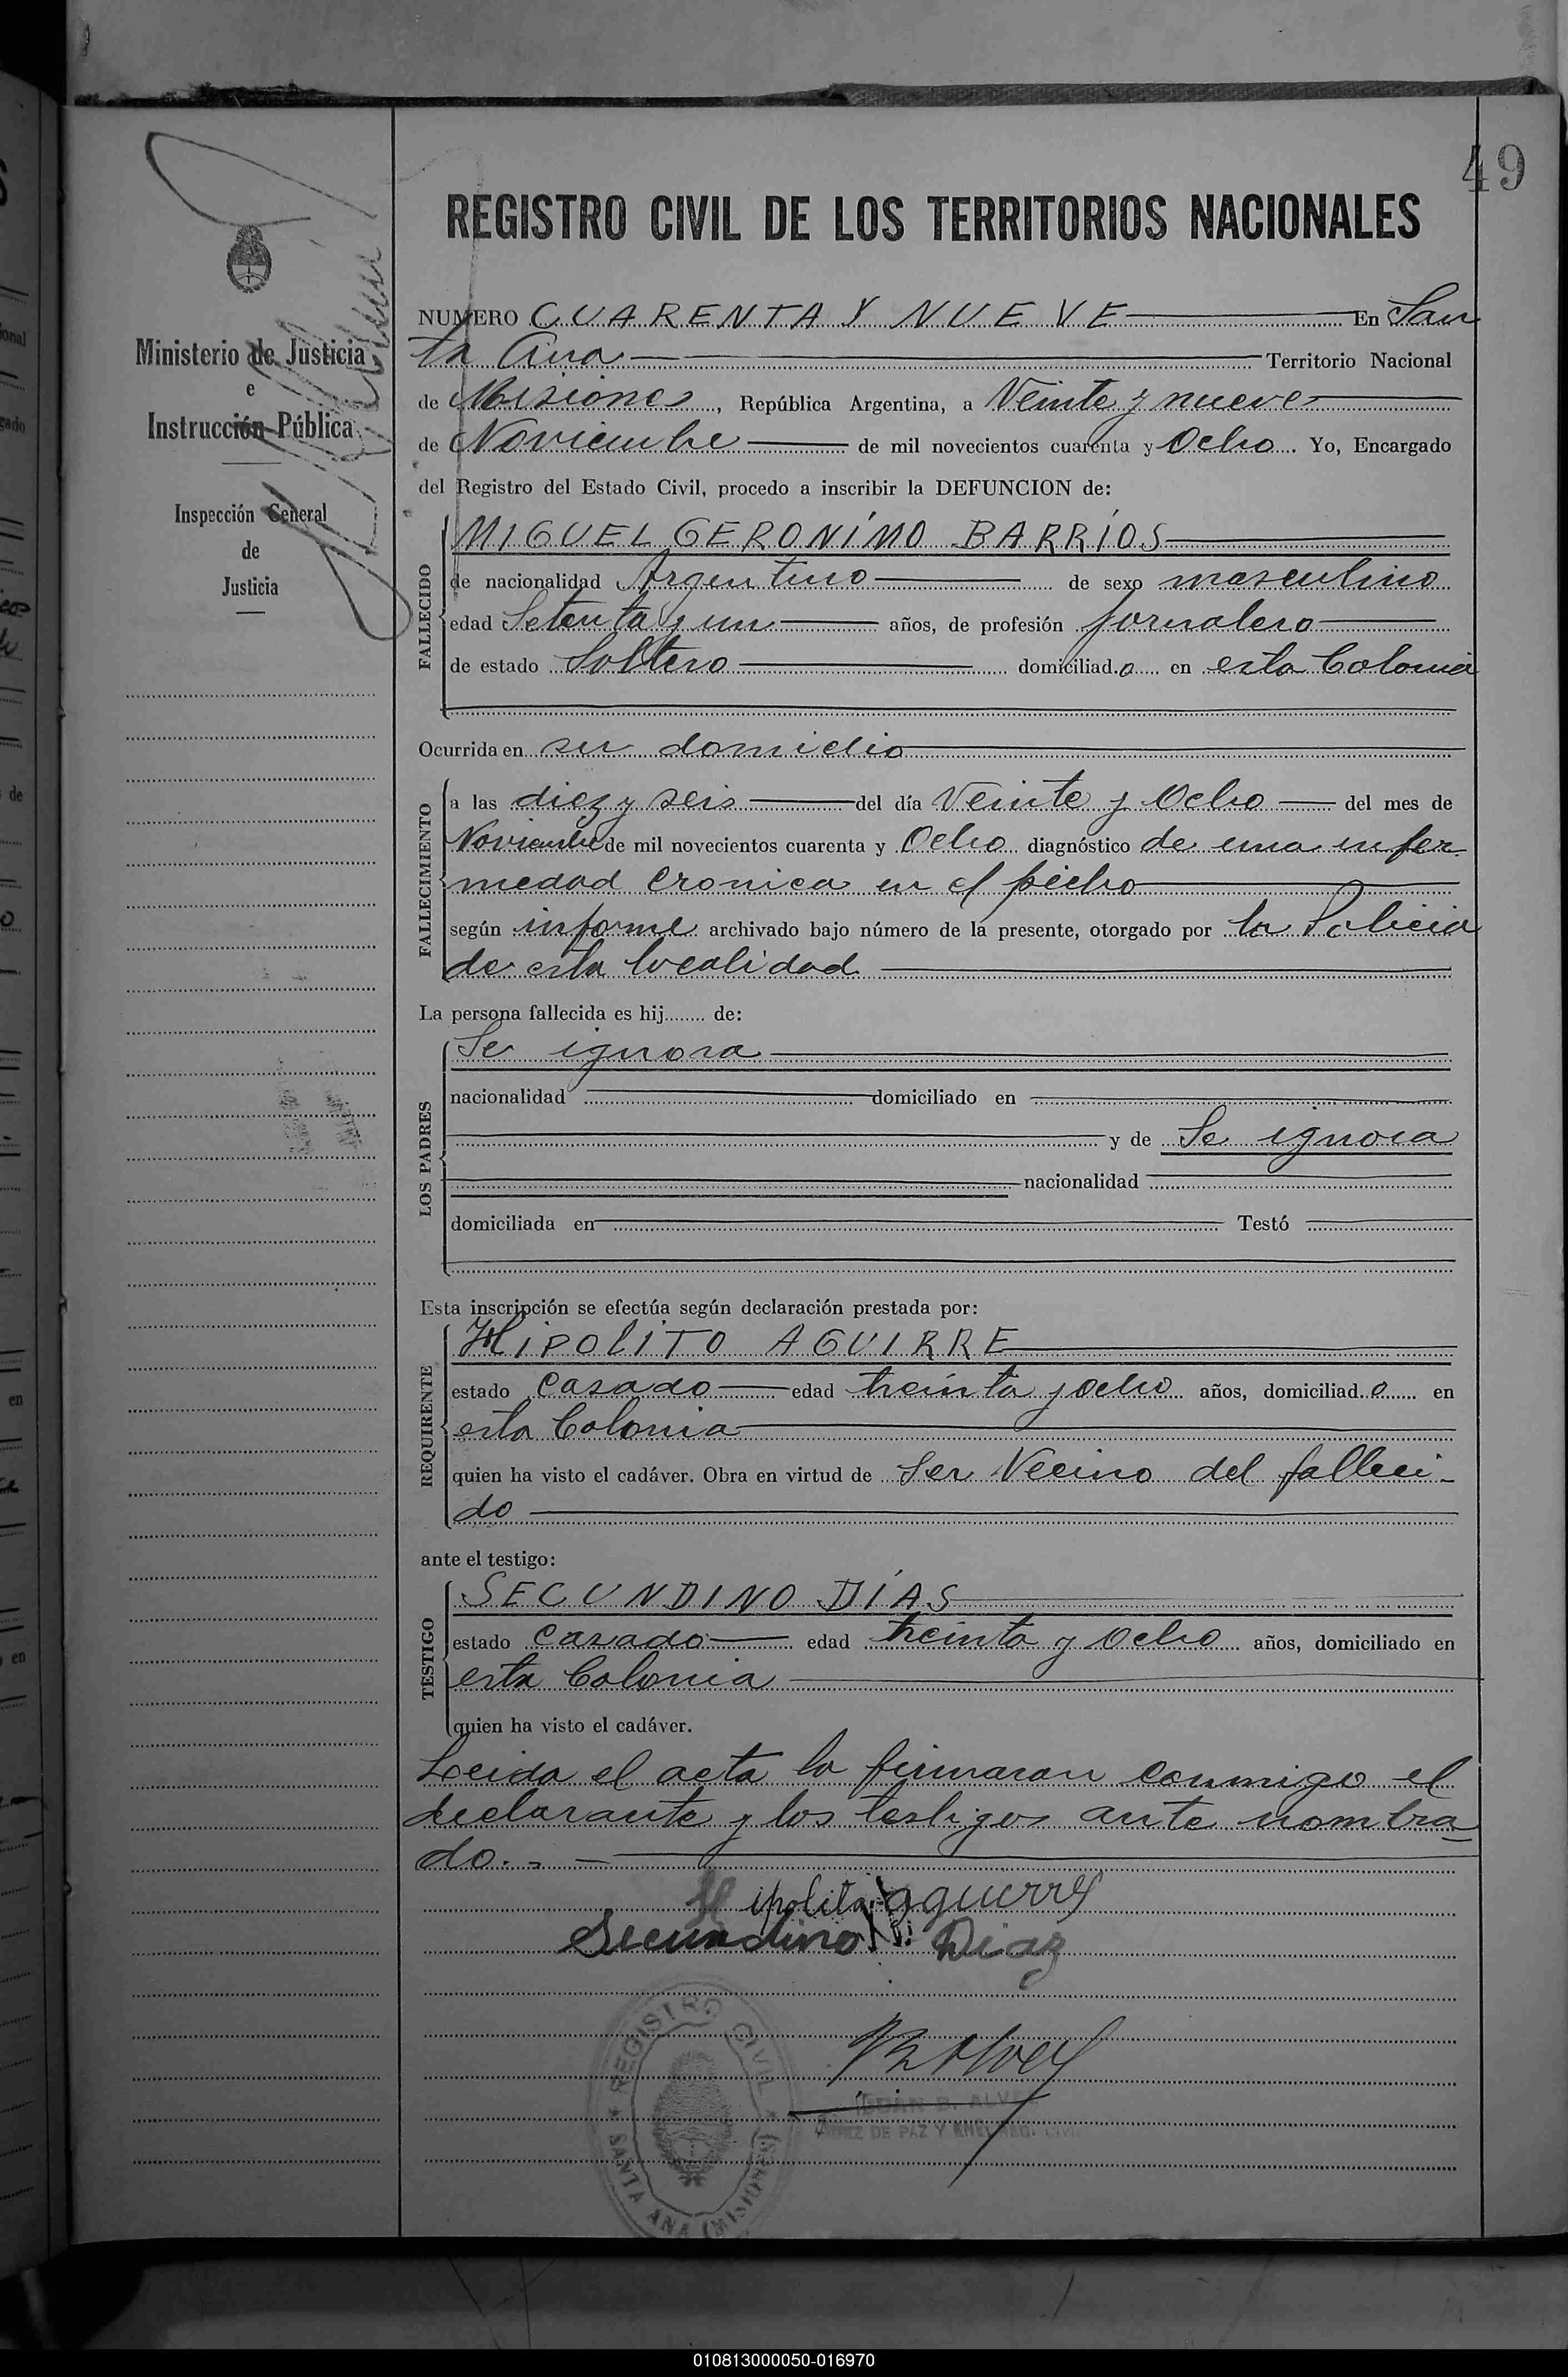 49
REGISTRO CIVIL DE LOS TERRITORIOS NACIONALES
Ministerio de Justicia
e
Instrucción Pública
Inspección General
de
Justicia
NUMERO CUARENTA Y NUEVE En San
ta Ana Territorio Nacional
de Misiones, República Argentina, a Veinte y nueve
de Noviembre de mil novecientos cuarenta y Ocho. Yo, Encargado
del Registro del Estado Civil, procedo a inscribir la DEFUNCION de:
FALLECIDO
MIGUEL GERONÍMO BARRÍOS
de nacionalidad Argentino de sexo masculino
edad Setenta y un años, de profesión jornalero
de estado Soltero domiciliad.o en esta Colonia
Ocurrida en su domicilio
FALLECIMIENTO
a las diez y seis del día Veinte y Ocho del mes de
Noviembre de mil novecientos cuarenta y Ocho diagnóstico de una enfer
medad cronica en el pecho
según informe archivado bajo número de la presente, otorgado por la Policia
de esta localidad
La persona fallecida es hij........ de:
LOS PADRES
Se ignora
nacionalidad domiciliado en
y de Se ignora
nacionalidad
domiciliada en Testó
Esta inscripción se efectúa según declaración prestada por:
REQUIRENTE
HIPOLITO AGUIRRE
estado Casado edad treinta y ocho años, domiciliad.o en
esta Colonia
quien ha visto el cadáver. Obra en virtud de Ser Vecino del falleci-
do
ante el testigo:
TESTIGO
SECUNDINO DÍAS
estado Casado edad treinta y Ocho años, domiciliado en
esta Colonia
quien ha visto el cadáver.
Leida el acta la firmaran conmigo el
declarante y los testigos ante nombra
do.-
Hipolito Aguirre
Secundino Diaz
REGISTRO CIVIL
SANTA ANA (MISIONES)
B. ALV
JUEZ DE PAZ Y ENC. REG. CIVIL
010813000050-016970